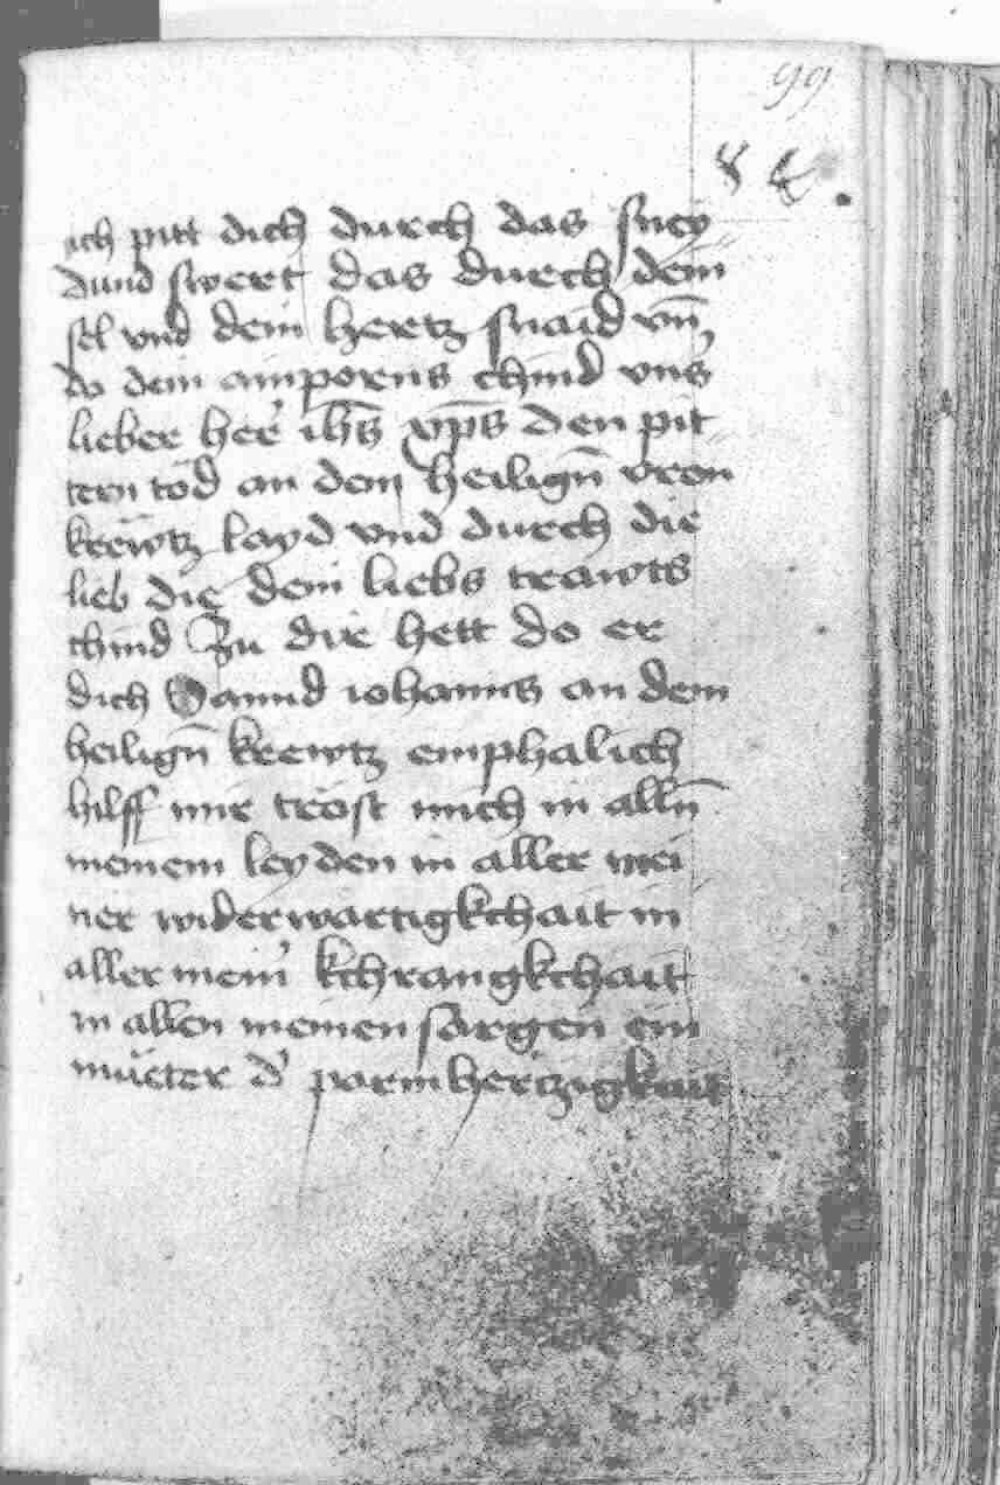 99
ich pitt dich durch das sney
dund swert das durch dein
sel vnd dein hertz snaid vn̄
do dein ainporns chind vns
lieber her' ih̄s xp̄s den pit
tern tod an dem heilign̄ vron
krewtz layd vnd durch die
lieb die dein liebs trawts
chind zu dir hett do er
dich Sannd iohanns an dem
heilign̄ krewtz emphalich
hilff mir tröst mich in alln̄
meinem leyden in aller mei
ner widerwärtigkchait in
aller mein' kchrangkchait
in allen meinen sorgen ein
müeter d' parmhertzigkait